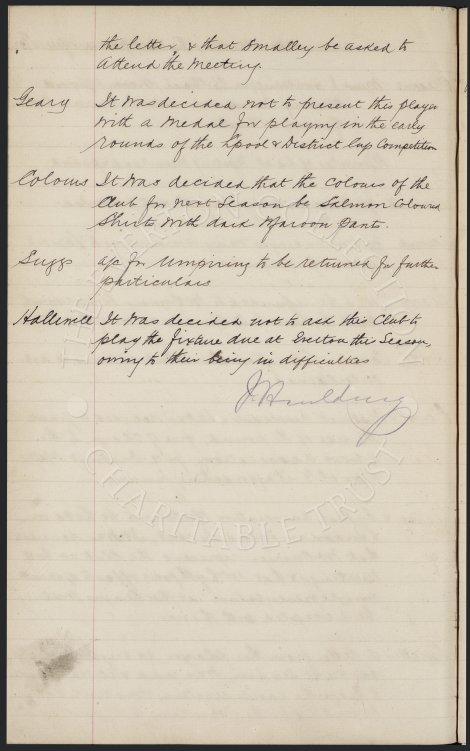 the letter, & that Smalley be asked to
attend the meeting.
Geary It was decided not to present this player
with a medal for playing in the early
rounds of the Lpool & District Cup Competition
Colours It was decided that the colours of the
Club for next Season be Salmon Coloured
Shirts with dark Maroon Pants.
Suggs a/c for Umpiring to be returned for further
particulars
Halliwell It was decided not to ask this Club to
play the fixture due at Everton this Season,
owing to their being in difficulties
J Houlding
CHARITABLE TRUST